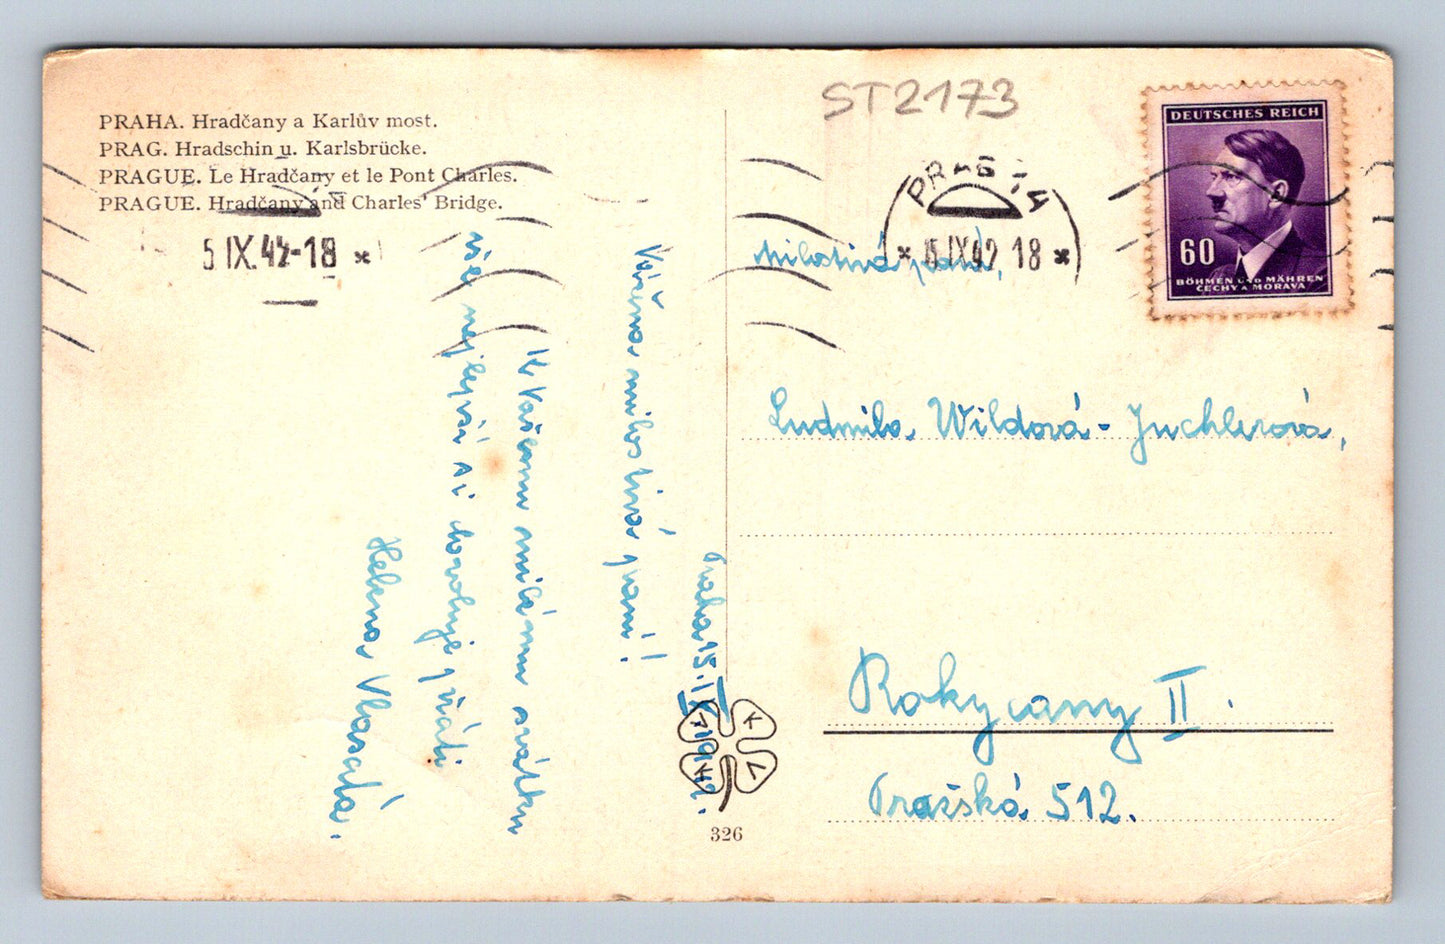 PRAHA. Hradčany a Karlův most.
PRAG. Hradschin u. Karlsbrücke.
PRAGUE. Le Hradčany et le Pont Charles.
PRAGUE. Hradčany and Charles' Bridge.
5 IX.42-18 *
Praha 15. IX. 1942.
Vážená milostivá paní!
K Vašemu milému svátku
vše nejlepší si dovoluje přáti
Helena Vlasáda.
ST2173
PRAHA
* 15.IX.42 18 *
DEUTSCHES REICH
60
BÖHMEN UND MÄHREN
ČECHY A MORAVA
Milostivá paní,
Ludmila Wildová-Juchlerová,
Rokycany II.
Pražská 512.
326